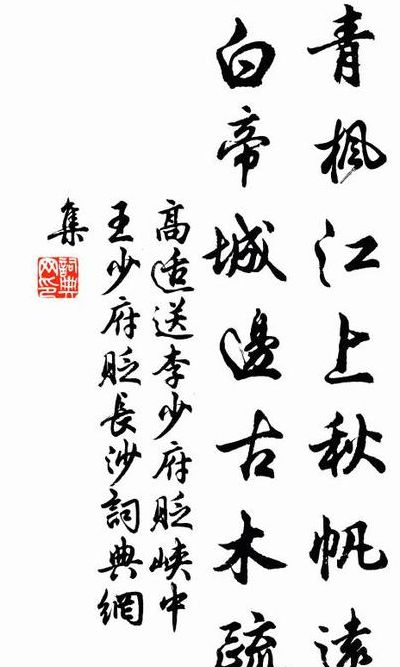 青楓江上秋帆遠
白帝城邊古木疏
高適送李少府貶峽中
王少府貶長沙詞典網
集
詞典網印